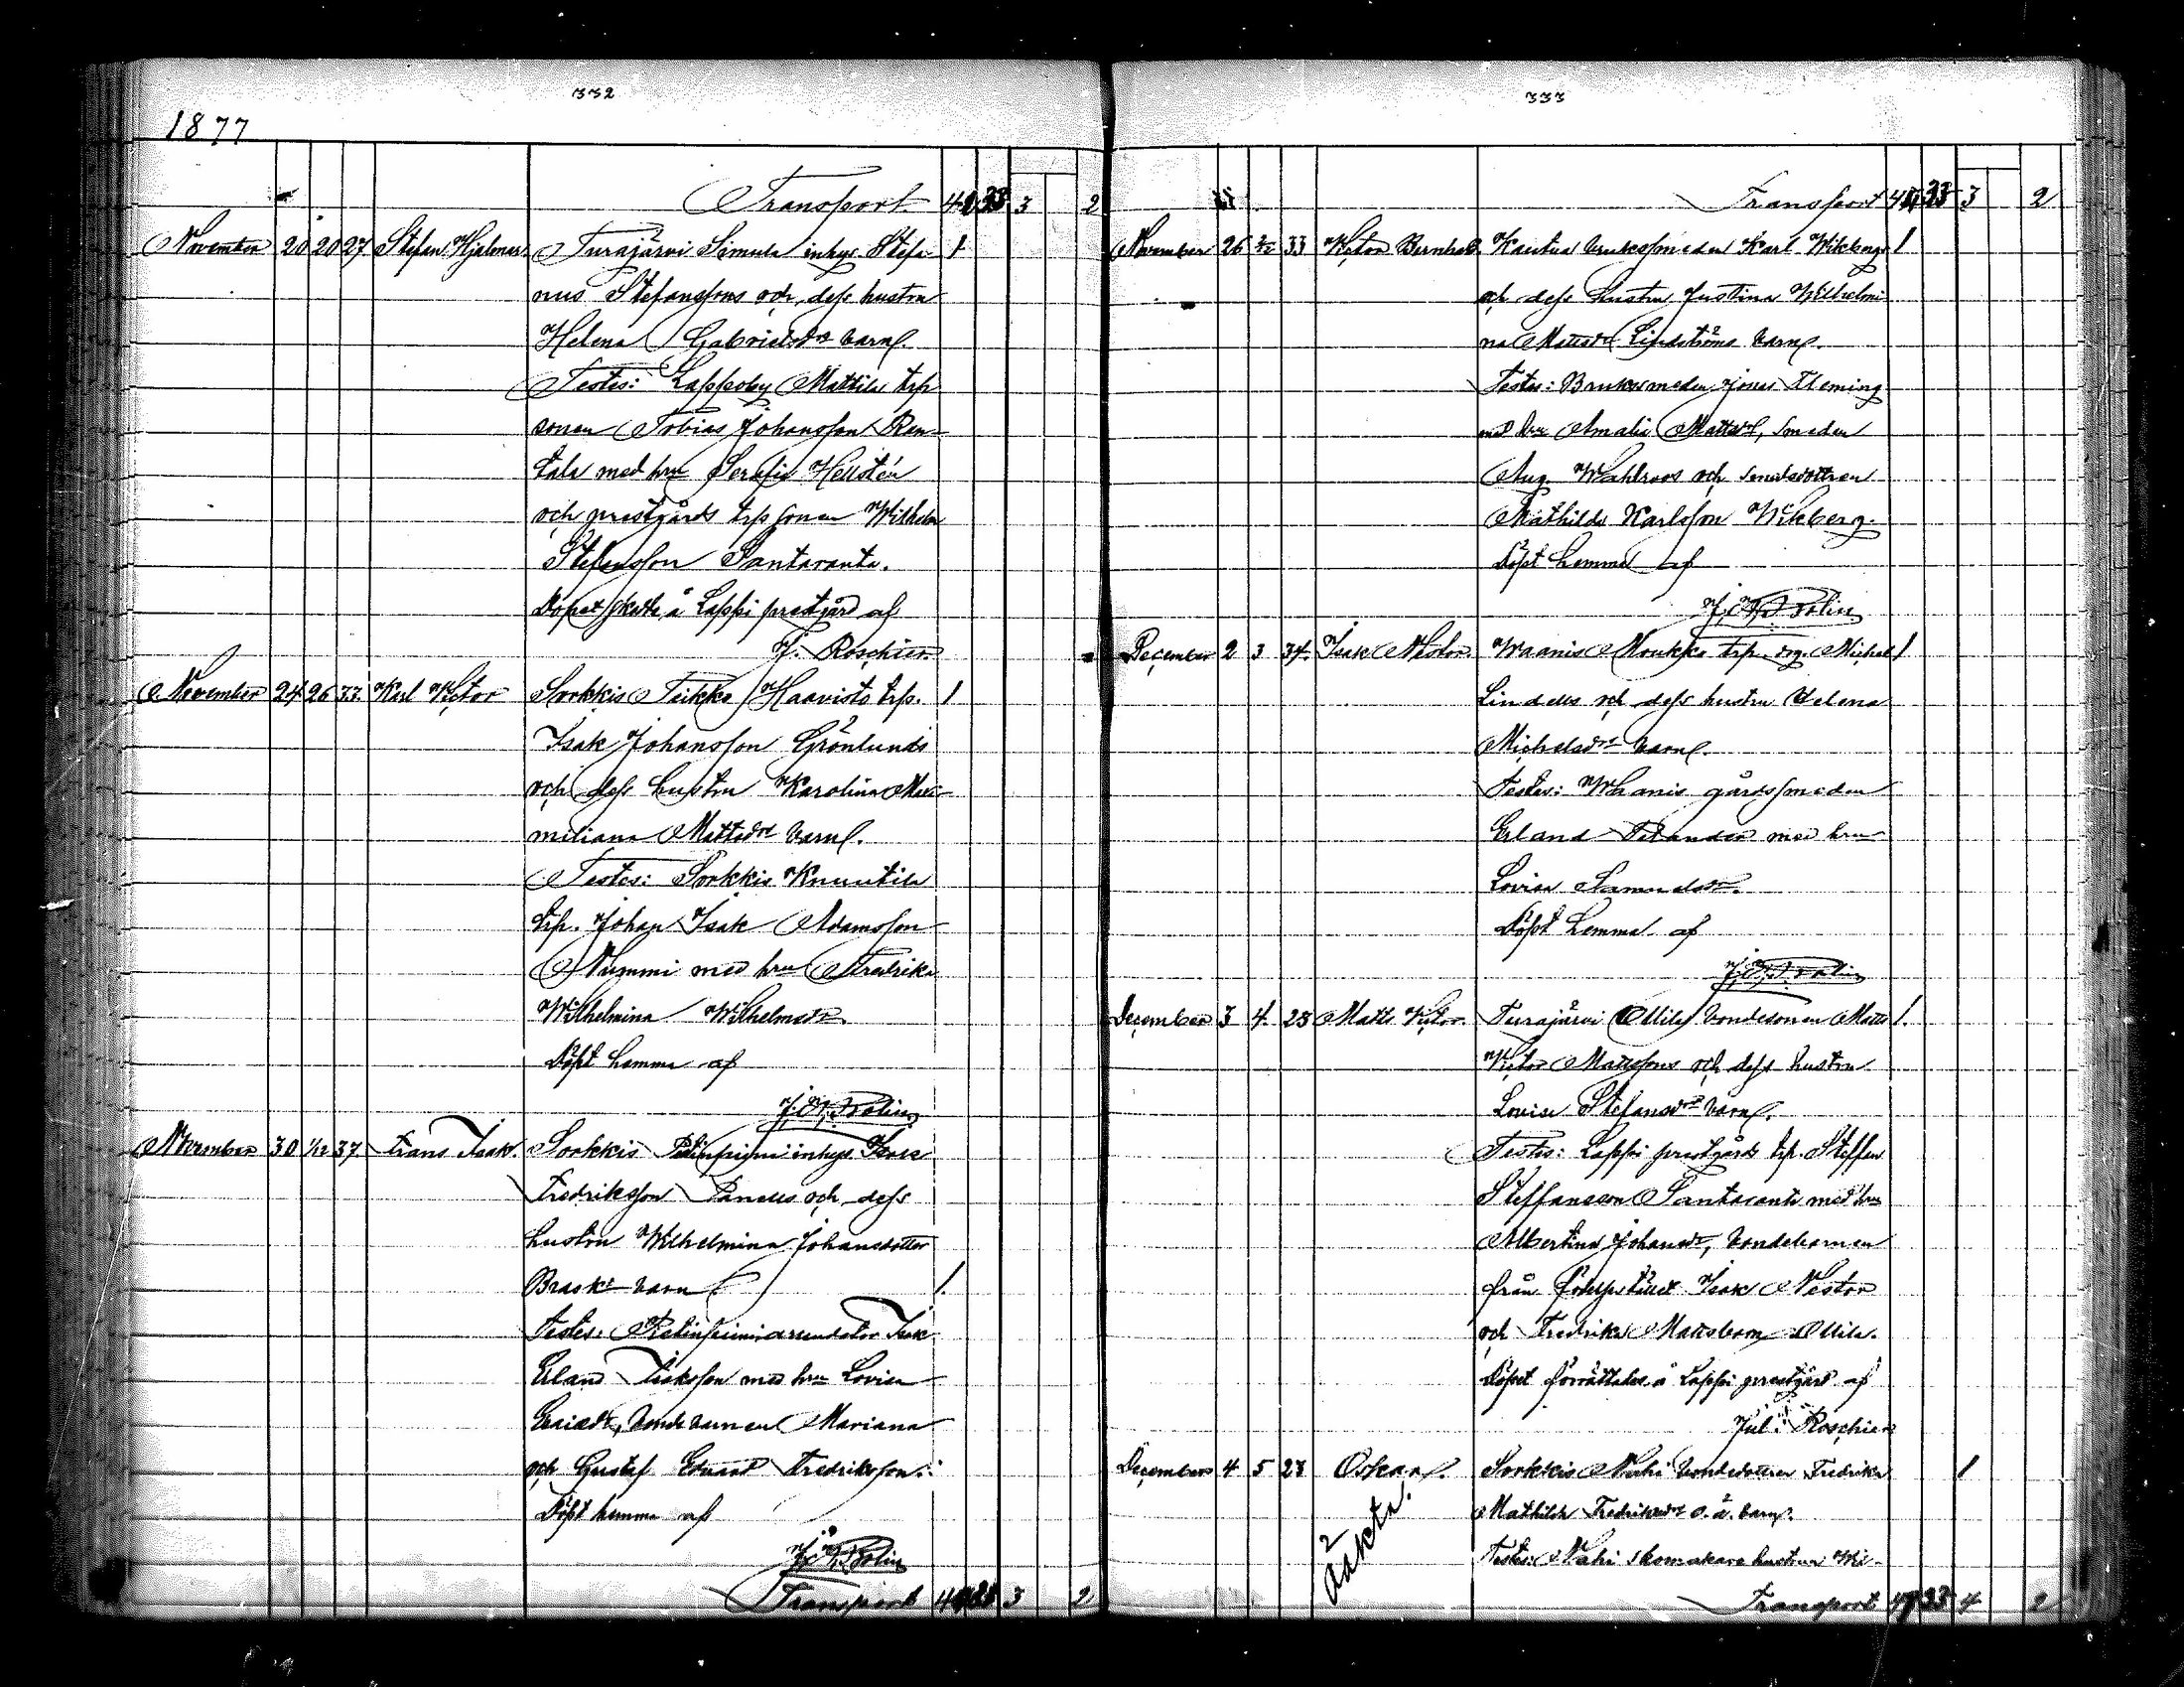 332
1877
Transport 41 33 3 2
November 20 20 27 Stefan Hjalmar. Turajärvi Simula inhys. Stefa- 1
nus Stefanssons och dess hustru
Helena Gabrielsdrs barn.
Testes: Lappoby Mattila trp
sonen Tobias Johansson Ran-
tala med hru Serafia Hellstén
och prestgårds trp sonen Wilhelm
Stefansson Santaranta.
Döpet skedde å Lappi prestgård af
J. Roschier.
November 24 26 33. Karl Victor Sorkkis Teikko Haavisto trp. 1
Isak Johansson Grönlunds
och dess hustru Karolina Maxi-
miliana Mattsdrs barn.
Testes: Sorkkis Knuutila
trp. Johan Isak Adamsson
Nummi med hru Fredrika
Wilhelmina Wilhelmsdr.
Döpt hemma af
J. W. Rolin
November 30 1/12 37. Frans Isak. Sorkkis inhys
Fredriksson och dess
hustru Wilhelmina Johansdotter
Brasks barn 1.
Testes: arrendator Isak
Erland Isaksson med hru Lovisa
bondebarnen Mariana
och Gustaf Eduard Fredriksson.
Döpt hemma af
J. W. Rolin
Transport 3 2
333
Transport 33 3 2
November 26 2/12 33 Victor Bernhard. Kautua brukssmeden Karl Wikbergs 1
och dess hustru Justina Wilhelmi-
na Mattsdr Lindströms barn.
Testes: Bruksmeden Jonas Fleming
med hru Amalia Mattsdr, smeden
Aug. Wahlroos och smedsdottren
Mathilda Karlsson Wikberg.
Döpt hemma af
J. W. Rolin
December 2 3 34. Isak Nestor. Waanis Moukko trp. Michel 1
Lindells och dess hustru Helena
Michelsdrs barn.
Testes: Waanis gårdssmeden
Erland med hru
Lovisa Samuelsdr.
Döpt hemma af
J. W. Rolin
December 3 4. 28 Matts Victor. Turajärvi Ollila bondesonen Matts 1.
Victor Mattssons och dess hustru
Lovisa Stefansdrs barn.
Testes: Lappi prestgårds trp. Steffan
Steffansson Santaranta med hru
Albertina Johansdr, bondebarnen
från förenstället Isak Nestor
och Fredrika Mattsbarn Ollila.
Döpet förrättades å Lappi prestgård af
Jul. Roschier
December 4 5 28 Oskar. Sorkkis Nahi bondedottren Fredrika 1
Mathilda Fredriksdrs o. ä. barn.
oäkta.
Testes: Nahi skomakare hustrun Wil-
Transport 47 33 4 2